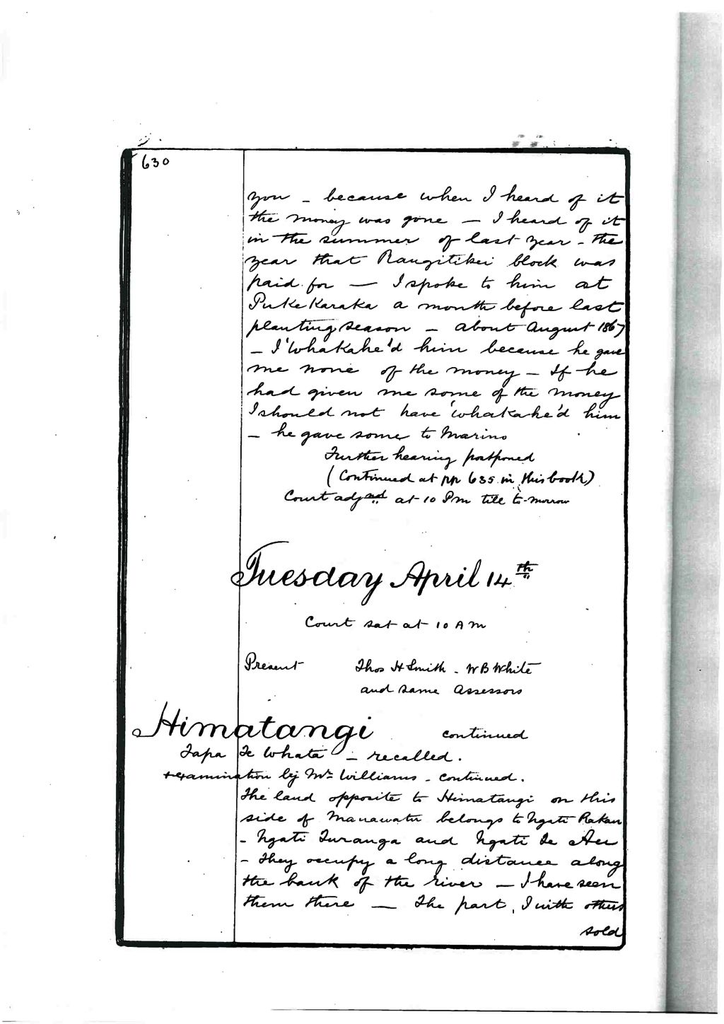 630
you - because when I heard of it
the money was gone - I heard of it
in the summer of last year - the
year that Rangitikei block was
paid for - I spoke to him at
Puke Karaka a month before last
planting season - about August 1867
- I 'whakahe'd him because he gave
me none of the money - If he
had given me some of the money
I should not have 'whakahe'd him
- he gave some to Marino
Further hearing postponed
(Continued at pp 635 in this book)
Court adjd at 10 Pm till to-morrow
Tuesday April 14th
Court sat at 10 A m
Present Thos H Smith - W B White
and same Assessors
Himatangi continued
Tapa Te Whata - recalled.
+examination by Mr Williams - continued.
The land opposite to Himatangi on this
side of Manawatu belongs to Ngati Rakau
- Ngati Turanga and Ngati Te Au
- They occupy a long distance along
the bank of the river - I have seen
them there - The part, I with others
sold